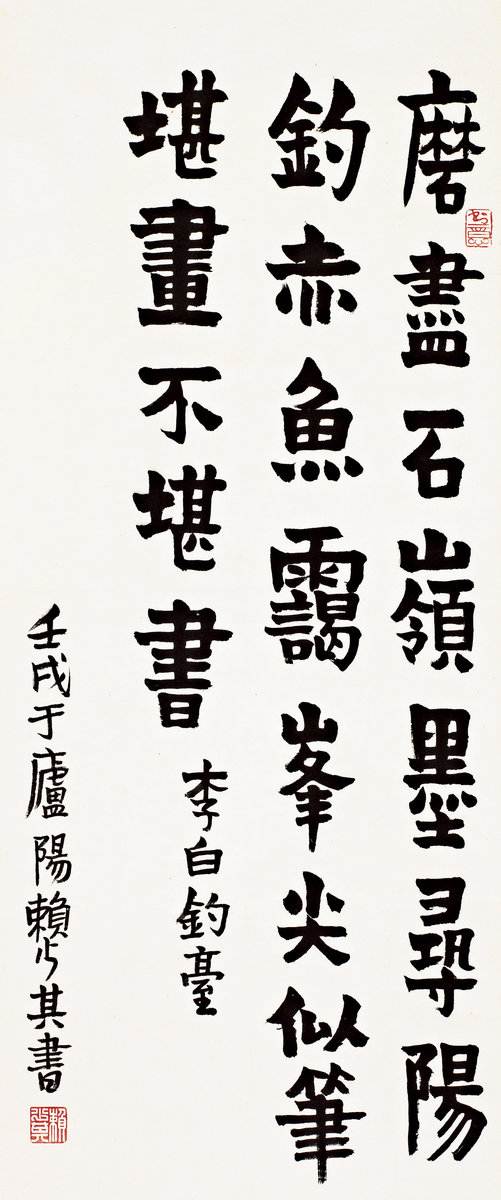 磨盡石嶺墨尋陽
釣赤魚靄峯尖似筆
堪畫不堪書 李白釣臺
壬戌于廬陽賴少其書
賴少其